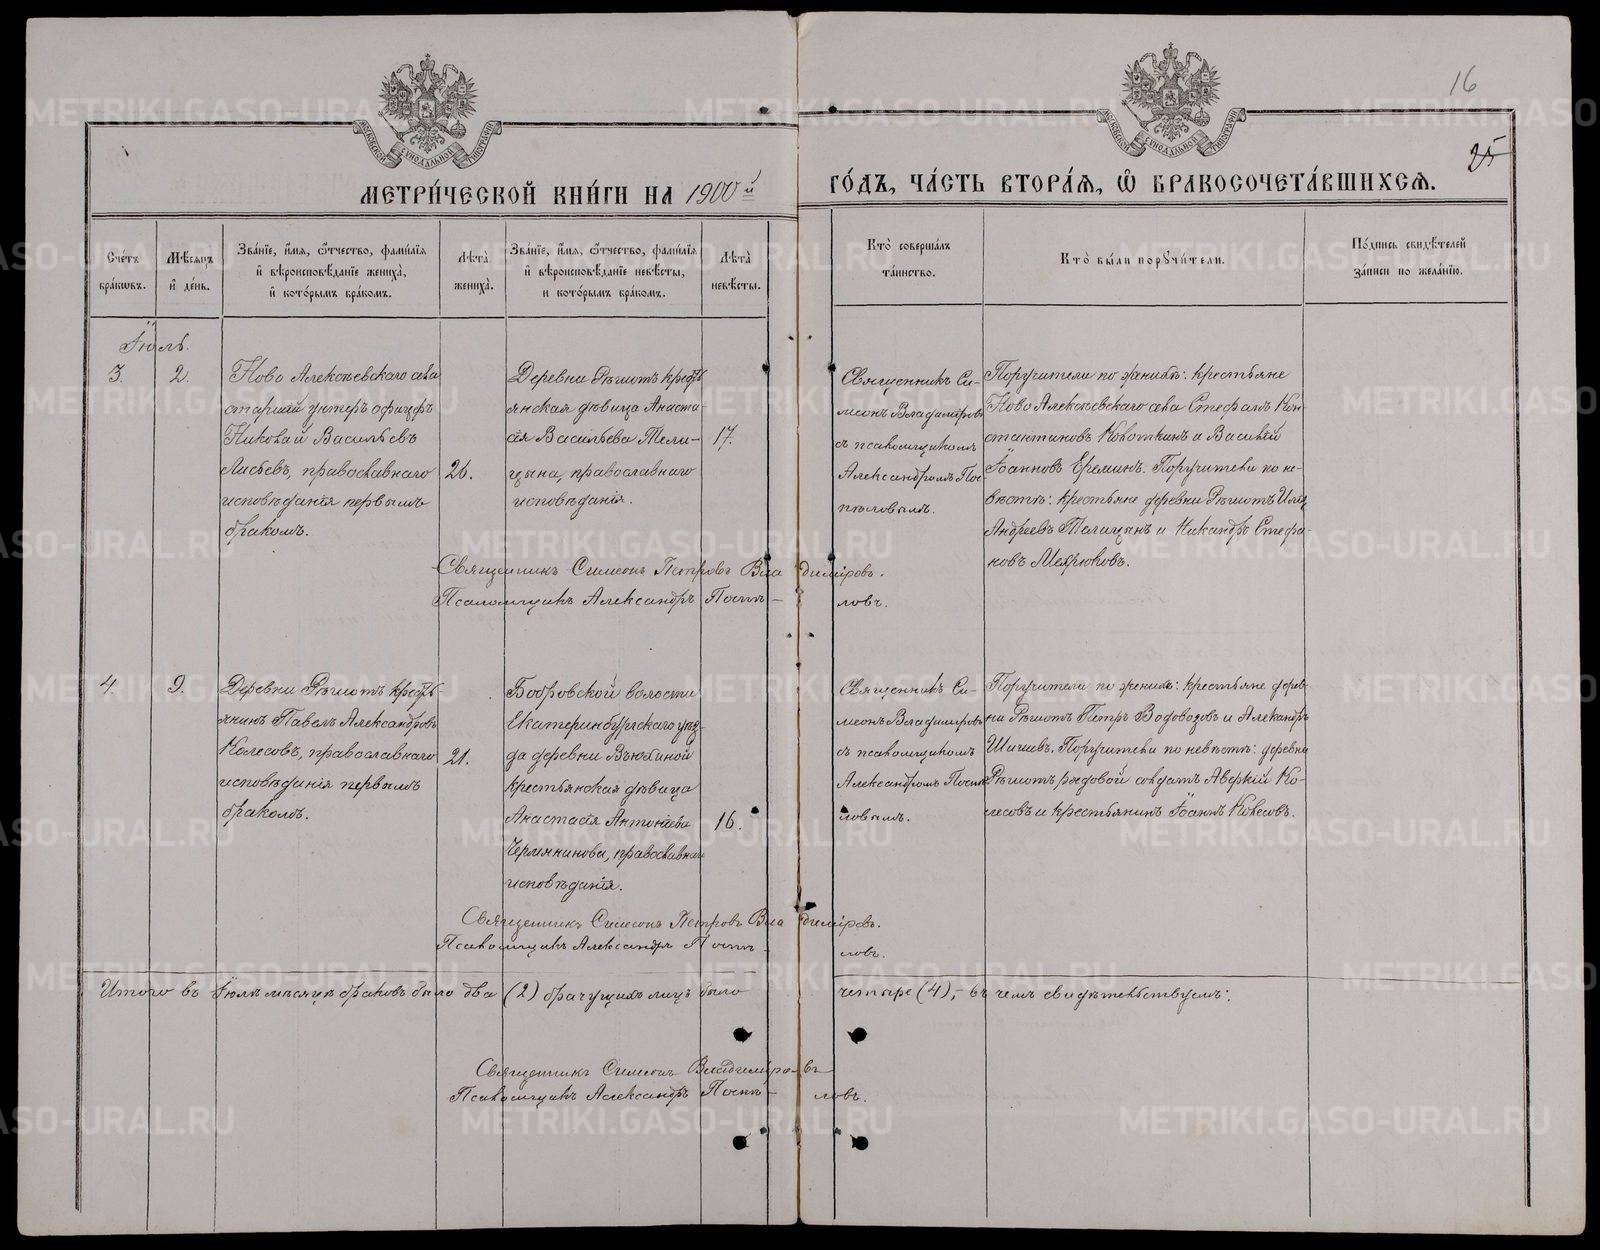 16
25
МОСКОВСКОЙ СѴНОДАЛЬНОЙ ТИПОГРАФІИ
МОСКОВСКОЙ СѴНОДАЛЬНОЙ ТИПОГРАФІИ
МЕТРИ́ЧЕСКОЙ КНИ́ГИ НА 1900й
ГО́ДЪ, ЧА́СТЬ ВТОРА́Я, Ѽ БРАКОСОЧЕТА́ВШИХСЯ.
Сче́тъ бра́кωвъ.
Мѣ́сяцъ и҆ де́нь.
Зва́нїе, и҆́мя, ѻ҆́тчество, фами́лїя и҆ вѣроисповѣ́данїе жениха̀, и҆ кото́рымъ бра́комъ.
Лѣ́та̀ жениха̀.
Зва́нїе, и҆́мя, ѻ҆́тчество, фами́лїя и҆ вѣроисповѣ́данїе невѣ́сты, и кото́рымъ бра́комъ.
Лѣ́та̀ невѣ́сты.
Кто̀ соверша́лъ та́инство.
Кто̀ бы́ли порꙋчи́тели.
По́дпись свидѣ́телей за́писи по жела́нїю.
Іюль.
3.
2.
Ново Алексѣевскаго села
старшій унтеръ офицеръ
Николай Васильевъ
Лисьевъ, православнаго
исповѣданія первымъ
бракомъ.
26.
Деревни Рѣшотъ кресть
янская дѣвица Анаста-
сія Васильева Тели-
цына, православнаго
исповѣданія.
17.
Священникъ Си-
меонъ Владиміровъ
съ псаломщикомъ
Александромъ Пос-
пѣловымъ.
Поручители по женихѣ: крестьяне
Ново Алексѣевскаго села Стефанъ Кон-
стантиновъ Коноткинъ и Василій
Іоанновъ Ереминъ. Поручители по не-
вѣстѣ: крестьяне деревни Рѣшотъ Илія
Андреевъ Талицынъ и Никандръ Стефа-
новъ Мехрюковъ.
Священникъ Симеонъ Петровъ Владиміровъ.
Псаломщикъ Александръ Поспѣ-ловъ.
4.
9.
Деревни Рѣшотъ кресть-
янинъ Павелъ Александровъ
Колесовъ, православнаго
исповѣданія первымъ
бракомъ.
21.
Бобровской волости
Екатеринбургскаго уѣз-
да деревни Вьюхиной
крестьянская дѣвица
Анастасія Антоніева
Чермянинова, православнаго
исповѣданія.
16.
Священникъ Си-
меонъ Владиміровъ
съ псаломщикомъ
Александромъ Поспѣ-
ловымъ.
Поручители по женихѣ: крестьяне дерев-
ни Рѣшотъ Петръ Водовозовъ и Александръ
Шишевъ. Поручители по невѣстѣ: деревни
Рѣшотъ рядовой солдатъ Аверкій Ко-
лесовъ и крестьянинъ Іоаннъ Колесовъ.
Священникъ Симеонъ Петровъ Владиміровъ.
Псаломщикъ Александръ Поспѣ-ловъ.
Итого въ Іюлѣ мѣсяцѣ браковъ было два (2) брачущихъ лицъ было четыре (4),- въ чемъ свидѣтельствуемъ:
Священникъ Симеонъ Владиміровъ
Псаломщикъ Александръ Поспѣ-ловъ.
METRIKI.GASO-URAL.RU